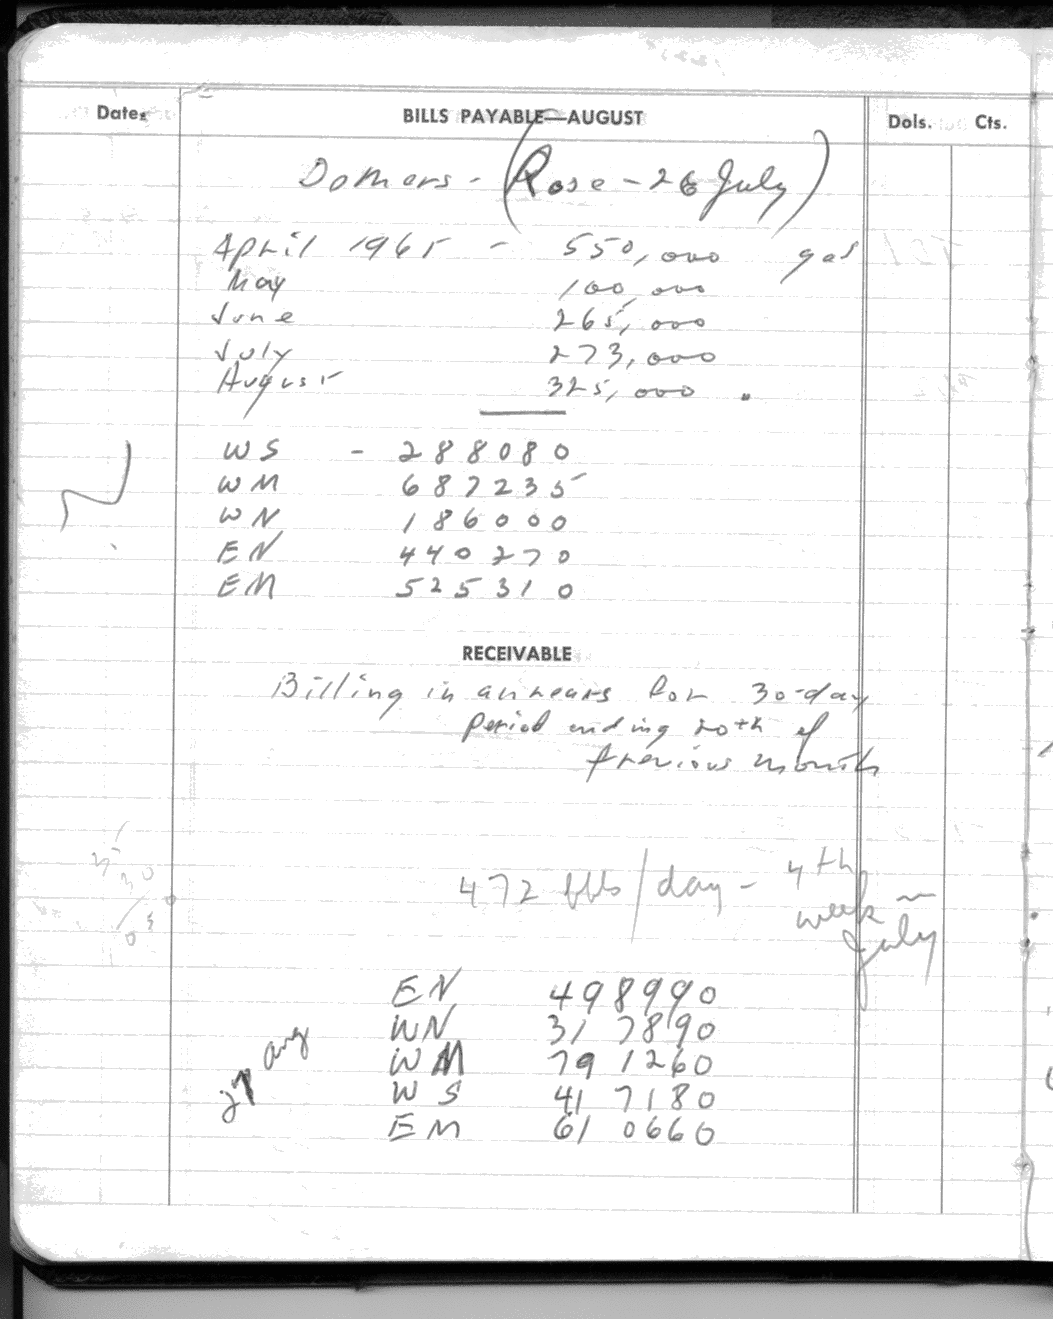 Date
BILLS PAYABLE—AUGUST
Dols. Cts.
Domers - (Rose - 26 July)
April 1965 - 550,000 gal
May 100,000
June 265,000
July 273,000
August 325,000
WS - 288080
WM 687235
WN 186000
EN 440270
EM 525310
RECEIVABLE
Billing in arrears for 30-day
period ending 20th of
previous month
472 bbls/day - 4th
week
July
EN 498990
WN 317890
WM 791260
27 Aug
WS 417180
EM 610660